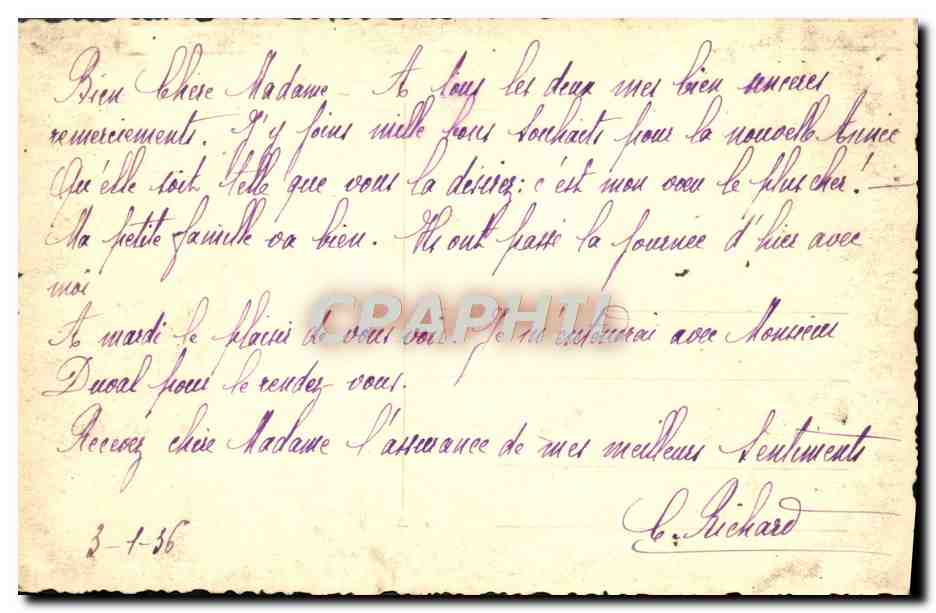 Bien Chère Madame - A tous les deux mes bien sincères
remerciements. J'y joins mille bons souhaits pour la nouvelle Année
Qu'elle soit telle que vous la désirez : c'est mon vœu le plus cher ! -
Ma petite famille va bien. Ils ont passé la journée d'hier avec
moi
CPAPHTI
A mardi le plaisir de vous voir. Je m'entendrai avec Monsieur
Duval pour le rendez-vous.
Recevez chère Madame l'assurance de mes meilleurs sentiments
C. Richard
3-1-36